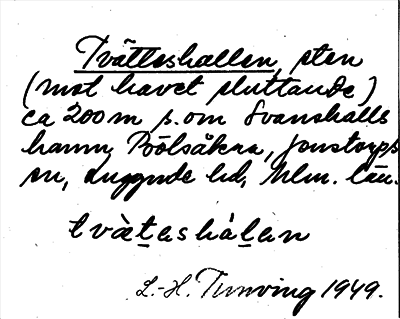 Tvätteshallen, sten
(mot havet sluttande)
ca 200 m s. om Svanshalls
hamn, Bölsåkra, Jonstorps
sn, Luggude hd, Mlm. län.
tvæ̀teshálan
L.-H. Tunving 1949.